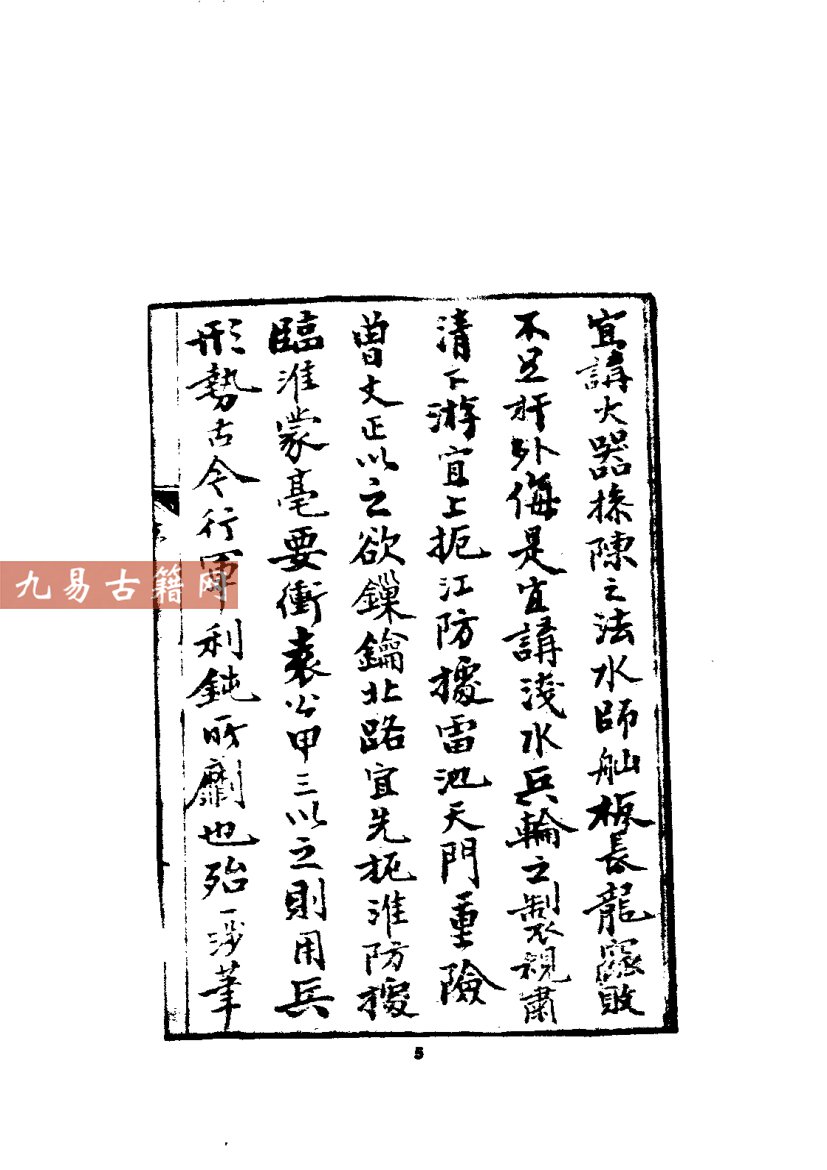 宜講火器操陳之法水師舢板長龍窳敗
不足扞外侮是宜講淺水兵輪之製規肅
清下游宜上扼江防據雷池天門重險
曾文正以之欲鏁鑰北路宜先扼淮防據
臨淮蒙亳要衝袁公甲三以之則用兵
形勢古今行軍利鈍所關也殆一涉筆
九易古籍网
5